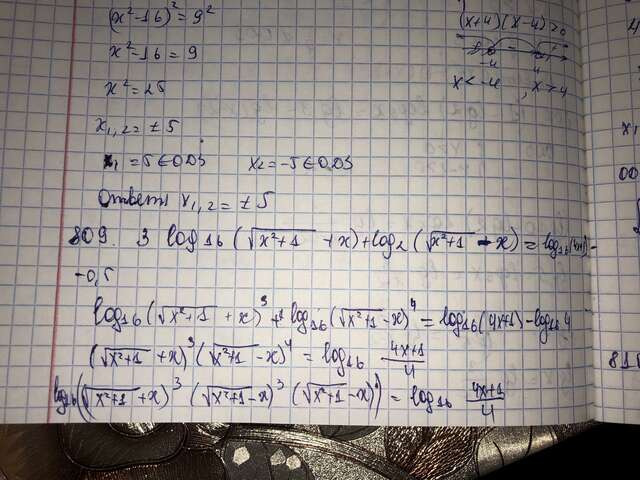 (x²-16)² = 9²
x²-16 = 9
x² = 25
x₁,₂ = ± 5
x₁ = 5 ∈ ОДЗ x₂ = -5 ∈ ОДЗ
Ответ: x₁,₂ = ± 5
(x+4)(x-4)>0
-4 4
x < -4, x > 4
809. 3 log₁₆(√x²+1 + x) + log₂(√x²+1 - x) = log₁₆(4x+1) -
-0,5
log₁₆(√x²+1 + x)³ + log₁₆(√x²+1 - x)⁴ = log₁₆(4x+1) - log₁₆4
(√x²+1 + x)³ (√x²+1 - x)⁴ = log₁₆ 4x+1/4
log₁₆((√x²+1 + x)³ (√x²+1 - x)³ (√x²+1 - x)) = log₁₆ 4x+1/4